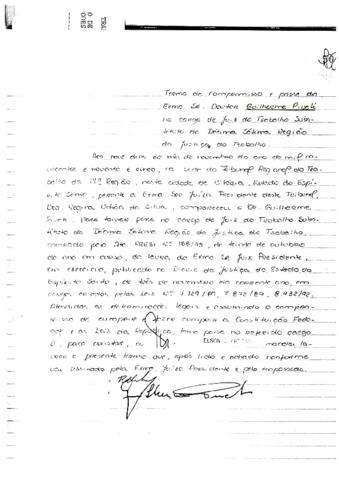 Termo de compromisso e posse do
Exmo. Sr. Doutor Guilherme Piveti
no cargo de Juiz do Trabalho Subs-
tituto da Décima Sétima Região
da Justiça do Trabalho.
Aos nove dias do mês de novembro do ano de mil no-
vecentos e noventa e cinco, na sede do Tribunal Regional do Tra-
balho da 17ª Região, nesta cidade de Vitória, Estado do Espí-
rito Santo, perante a Exma. Sra. Juíza Presidente deste Tribunal,
Dra. Regina Uchôa da Silva, compareceu o Dr. Guilherme
Piveti, para tomar posse no cargo de Juiz do Trabalho Subs-
tituto da Décima Sétima Região da Justiça do Trabalho,
nomeado pelo Ato PRESI Nº 108/95, de trinta de outubro
do ano em curso, da lavra do Exmo Sr. Juiz Presidente,
em exercício, publicado no Diário da Justiça do Estado do
Espírito Santo, de três de novembro do corrente ano, em
cargo criado pelas Leis Nº 7.729/89, 7.872/89, 8.432/92.
Atendidas as determinações legais e prestado o compro-
misso de cumprir e fazer cumprir a Constituição Fede-
ral e as Leis da República, tomou posse no referido cargo.
E, para constar, eu mandei la-
vrar o presente termo que, após lido e achado conforme
vai assinado pela Exma. Juíza Presidente e pelo empossado.